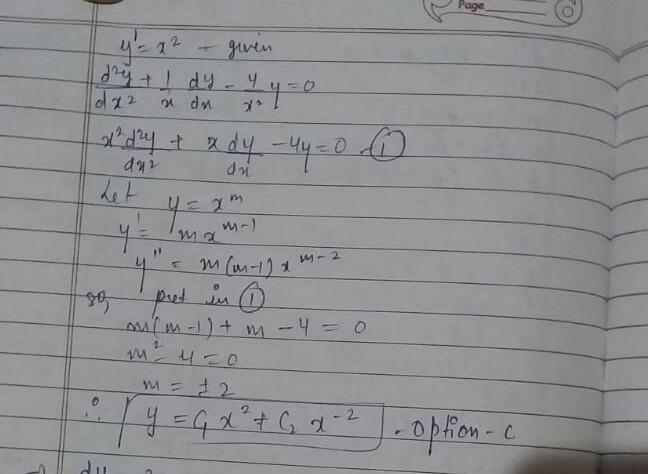 Page
y' = x² - given
d²y/dx² + 1/x dy/dx - 4/x² y = 0
x² d²y/dx² + x dy/dx - 4y = 0 - ①
Let y = x^m
y' = m x^(m-1)
y'' = m(m-1) x^(m-2)
so, put in ①
m(m-1) + m - 4 = 0
m² - 4 = 0
m = ± 2
∴ y = C₁ x² + C₂ x⁻² - option - c